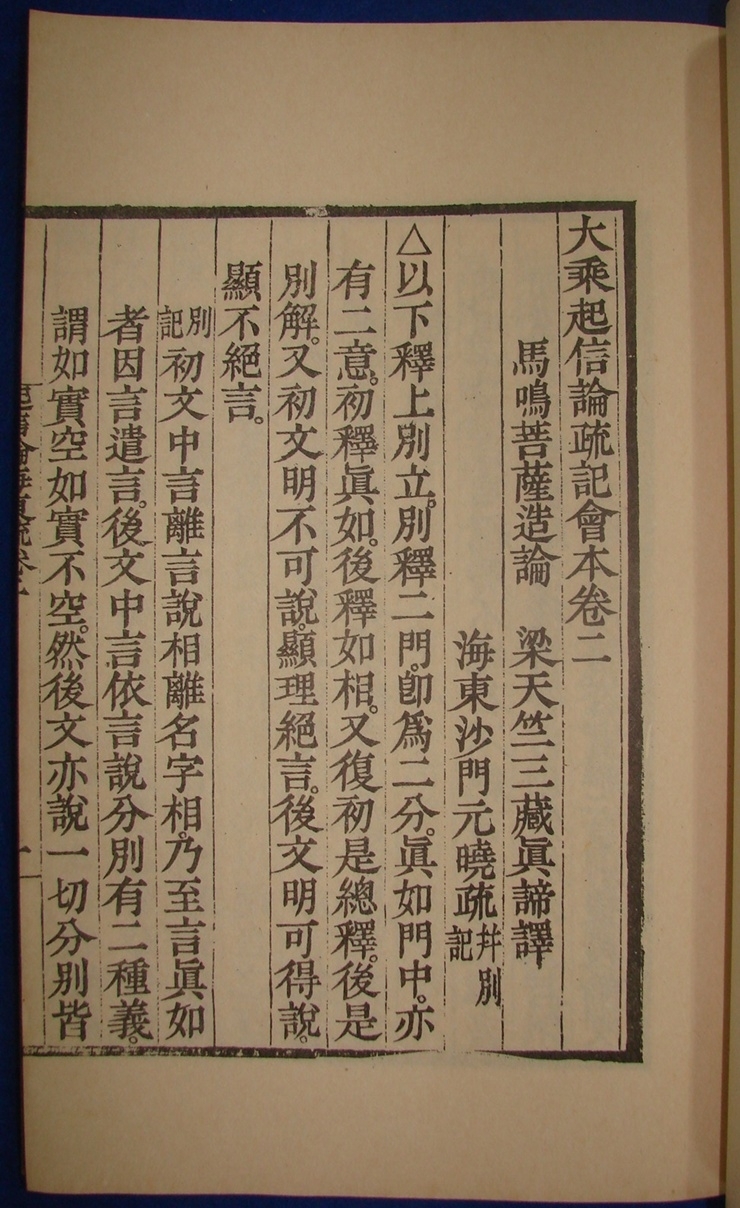 大乘起信論疏記會本卷二
馬鳴菩薩造論　梁天竺三藏眞諦譯
海東沙門元曉疏 幷別記
△以下釋上別立。別釋二門。卽爲二分。眞如門中。亦
有二意。初釋眞如。後釋如相。又復初是總釋。後是
別解。又初文明不可說。顯理絕言。後文明可得說。
顯不絕言。
別記初文中言離言說相離名字相。乃至言眞如
者因言遣言。後文中言依言說分別有二種義。
謂如實空如實不空。然後文亦說一切分別皆